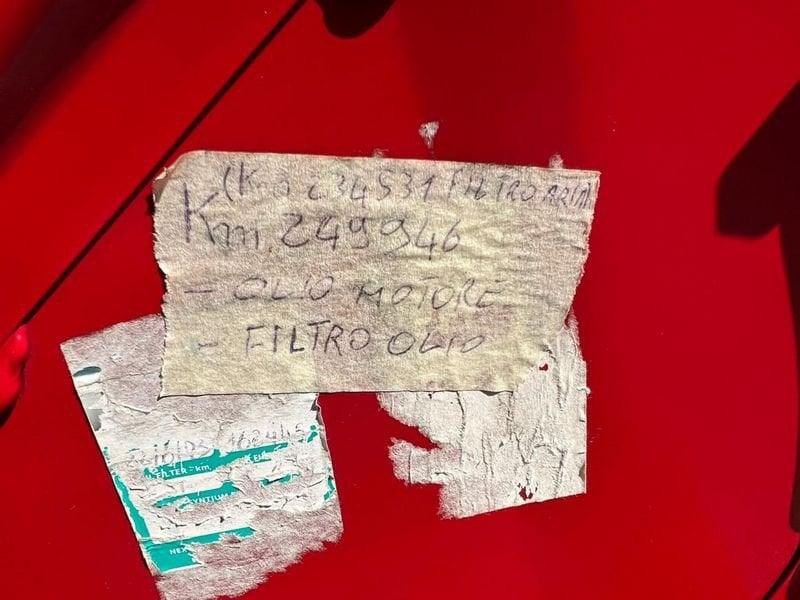 (Km 234531 FILTRO ARIA)
Km. 249946
- OLIO MOTORE
- FILTRO OLIO
FILTER - km.
SYNTIUM
NEX